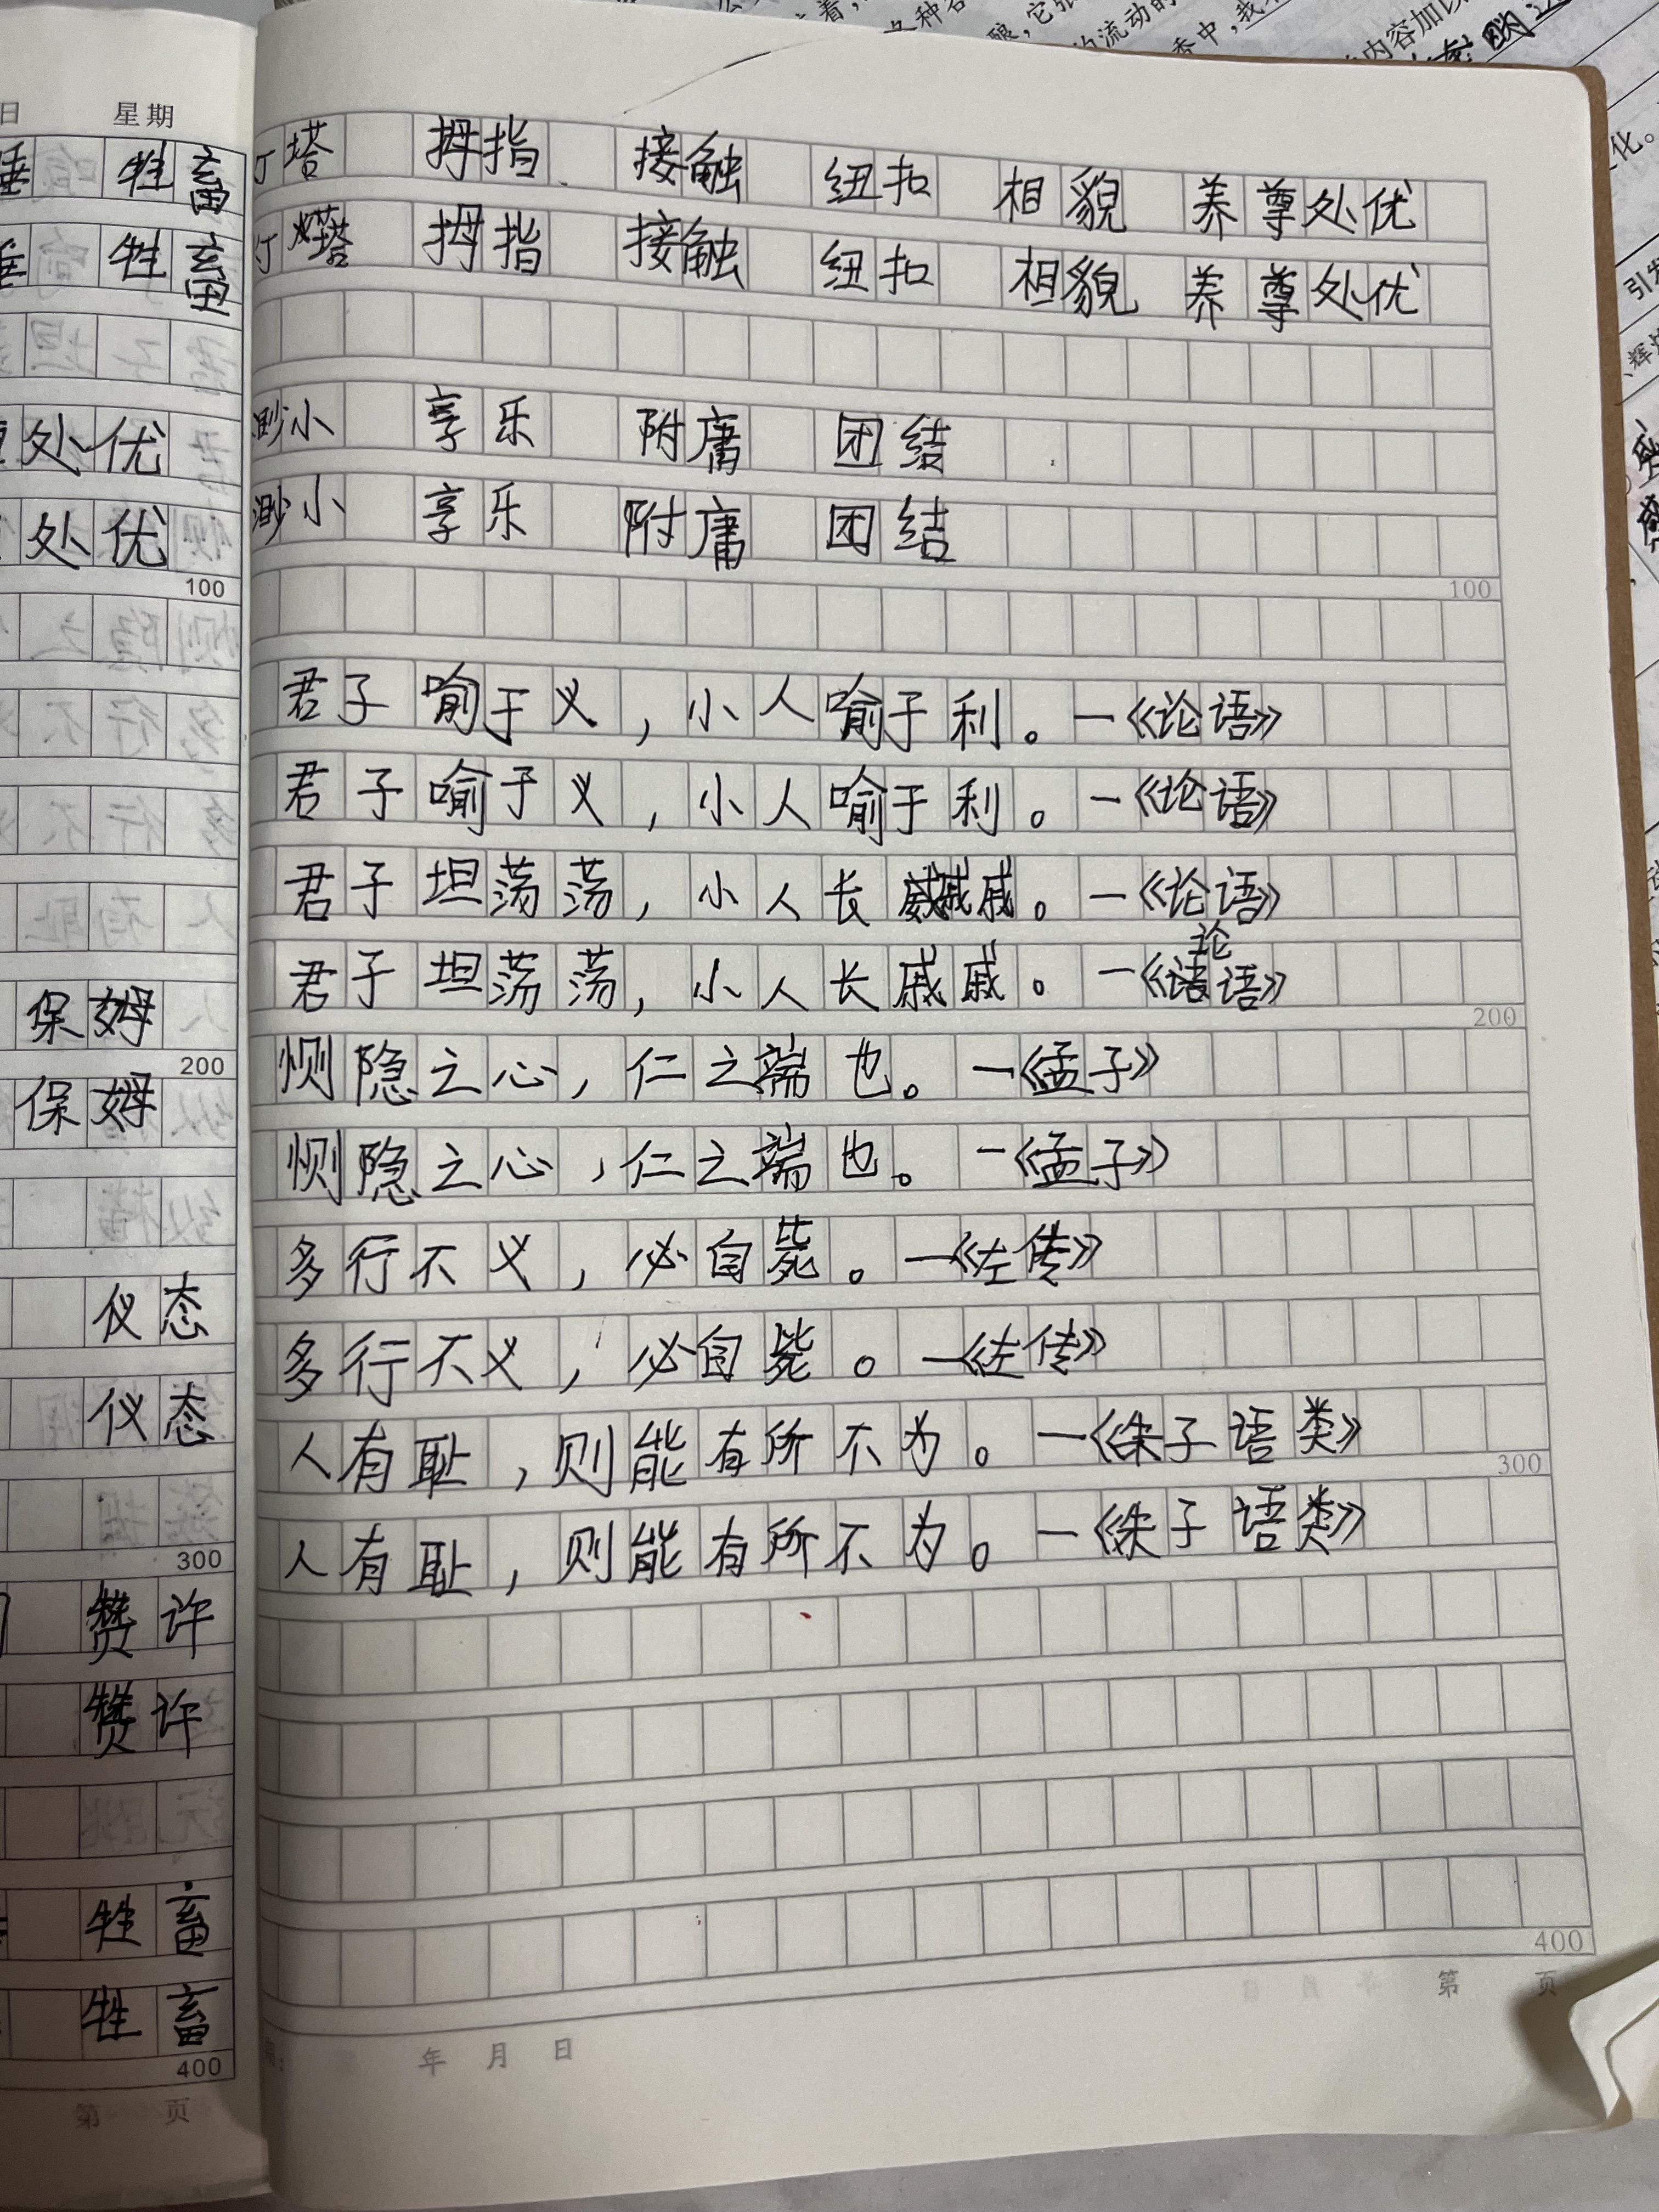 日 星期
牲畜
牲畜
处优
处优
100
保姆
200
保姆
仪态
仪态
300
赞许
赞许
牲畜
牲畜
400
第 页
灯塔 拇指 接触 纽扣 相貌 养尊处优
灯塔 拇指 接触 纽扣 相貌 养尊处优
渺小 享乐 附庸 团结
渺小 享乐 附庸 团结
100
君子喻于义,小人喻于利。—《论语》
君子喻于义,小人喻于利。—《论语》
君子坦荡荡,小人长戚戚。—《论语》
君子坦荡荡,小人长戚戚。—《论语》
200
恻隐之心,仁之端也。—《孟子》
恻隐之心,仁之端也。—《孟子》
多行不义,必自毙。—《左传》
多行不义,必自毙。—《左传》
人有耻,则能有所不为。—《朱子语类》
300
人有耻,则能有所不为。—《朱子语类》
400
第 页
年 月 日